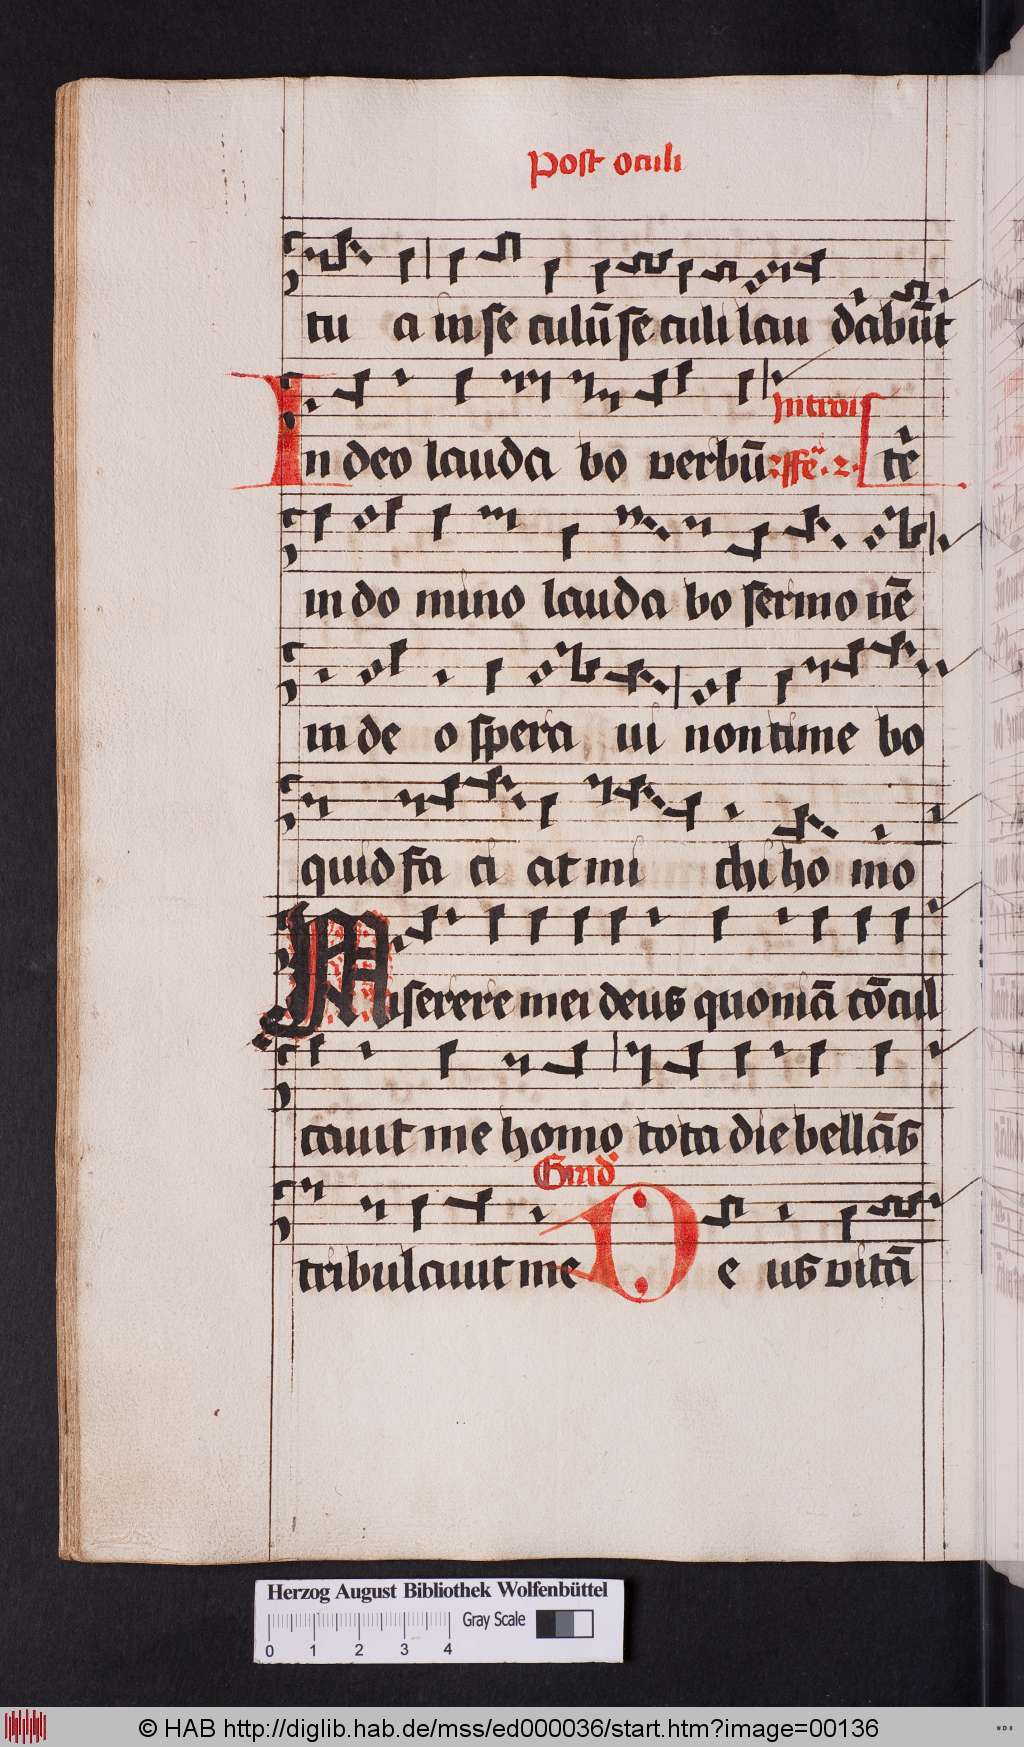 Post oculi
tu a in se culū se culi lau dabūt
In deo lauda bo verbū
Introit
ffe. 2. te
in do mino lauda bo sermo nē
in de o spera ui non time bo
quid fa ci at mi chi ho mo
Miserere mei deus quoniā cōcul
cauit me homo tota die bellās
Grad
tribulauit me De us vitā
Herzog August Bibliothek Wolfenbüttel
Gray Scale
0 1 2 3 4
© HAB http://diglib.hab.de/mss/ed000036/start.htm?image=00136